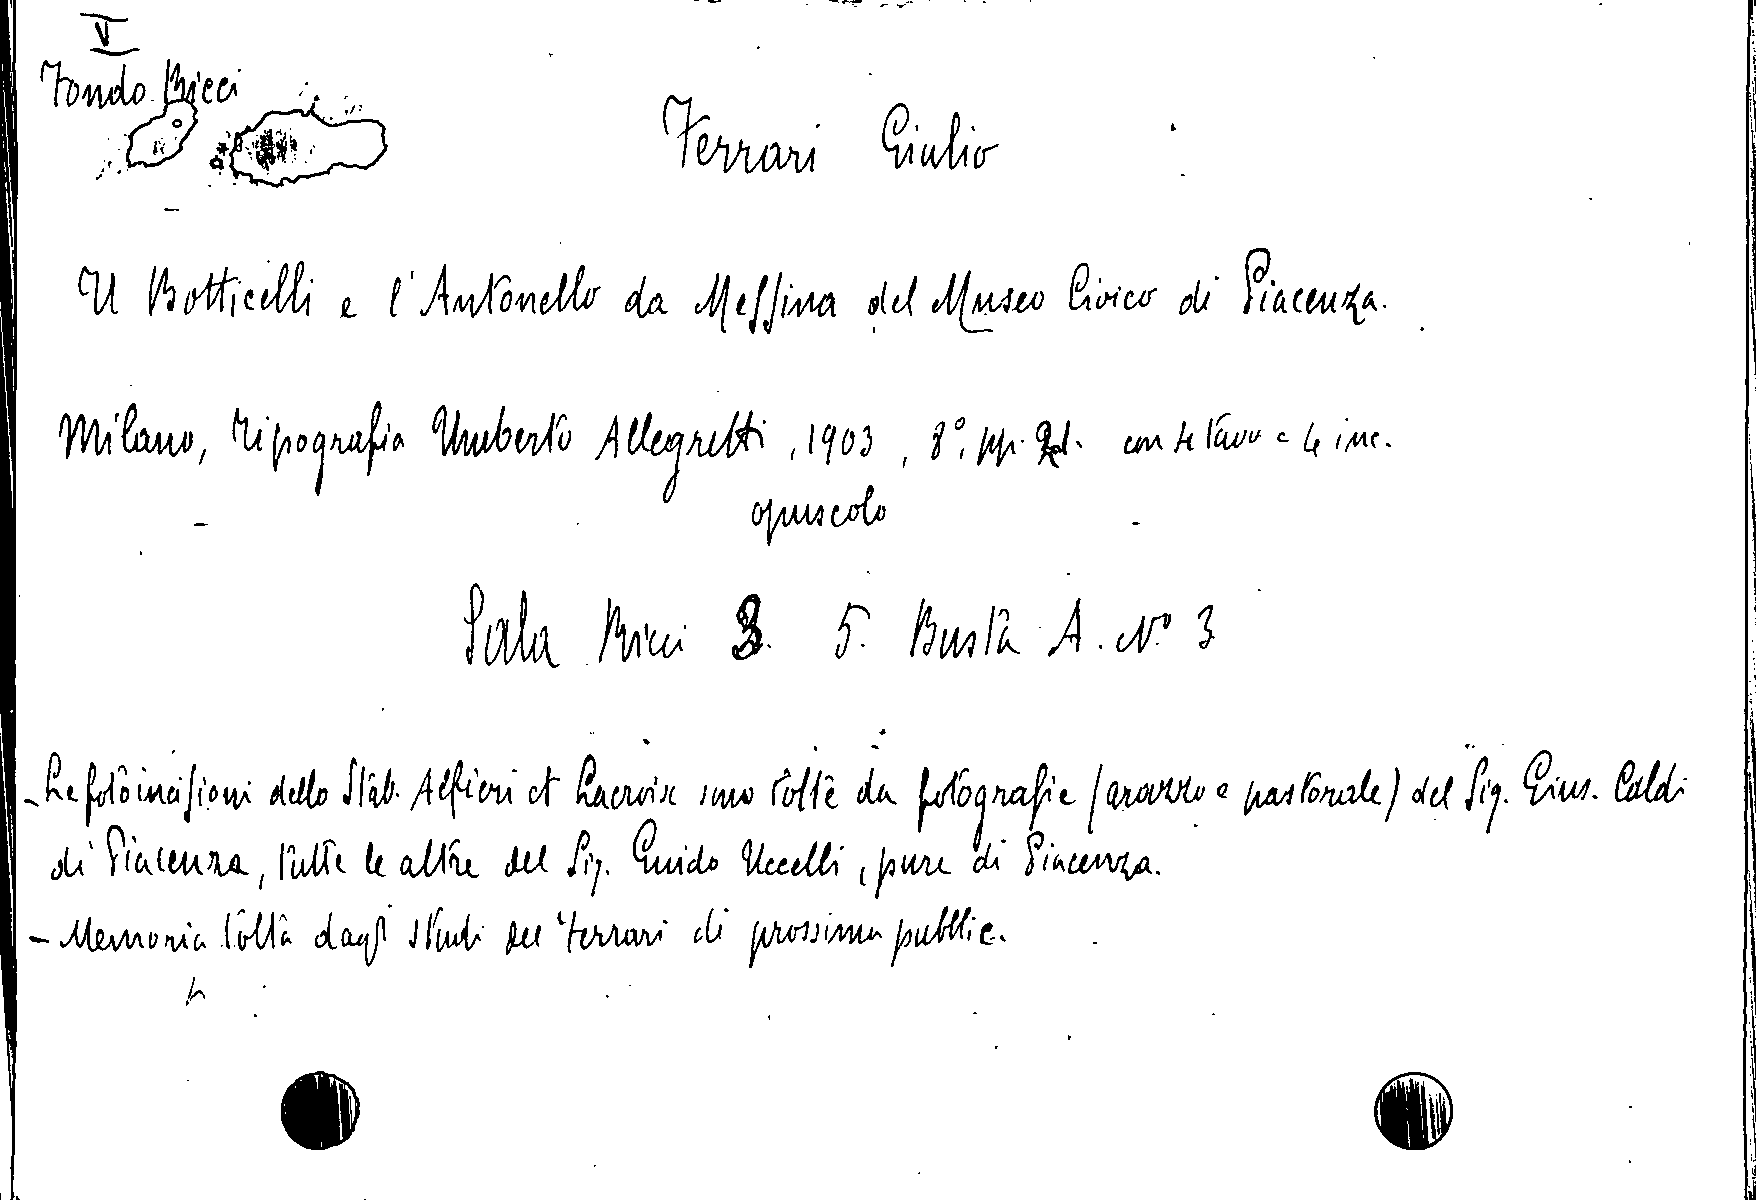 V
Fondo Ricci
Ferrari Giulio
Il Botticelli e l'Antonello da Messina del Museo Civico di Piacenza.
Milano, Tipografia Umberto Allegretti, 1903, 8°, pp. con 4 tavv e 4 inc.
opuscolo
Sala Ricci 3. 5. Busta A. N° 3
- Le fotoincisioni dello Stab. Alfieri et Lacroix sono tolte da fotografie (arazzo e pastorale) del Sig. Gius. Caldi
di Piacenza, tutte le altre del Sig. Guido Uccelli, pure di Piacenza.
- Memoria tolta dagli studi del Ferrari di prossima pubblic.